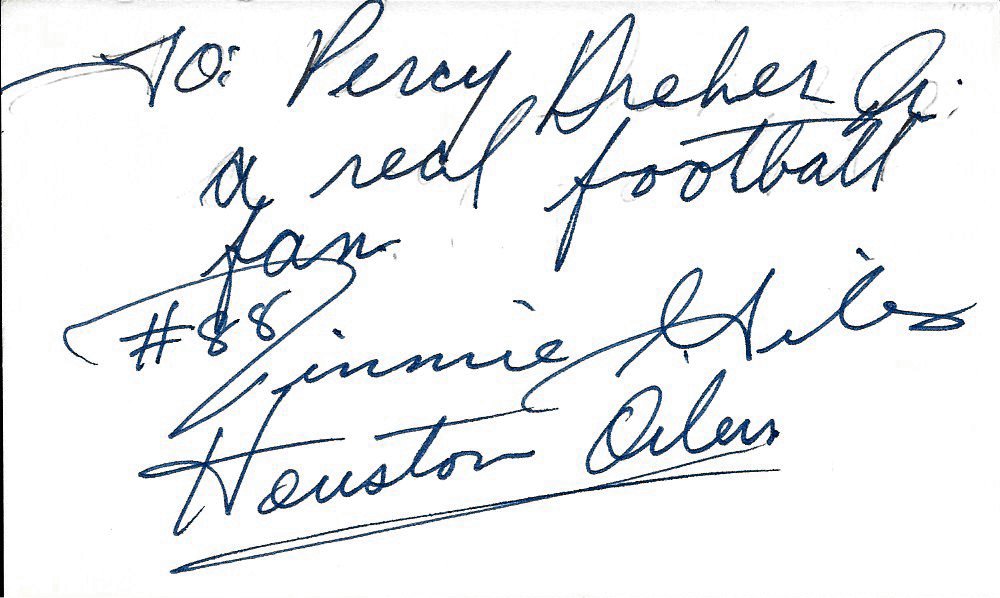 To: Percy Dreher Jr.
a real football
fan.
#88 Jimmie Giles
Houston Oilers